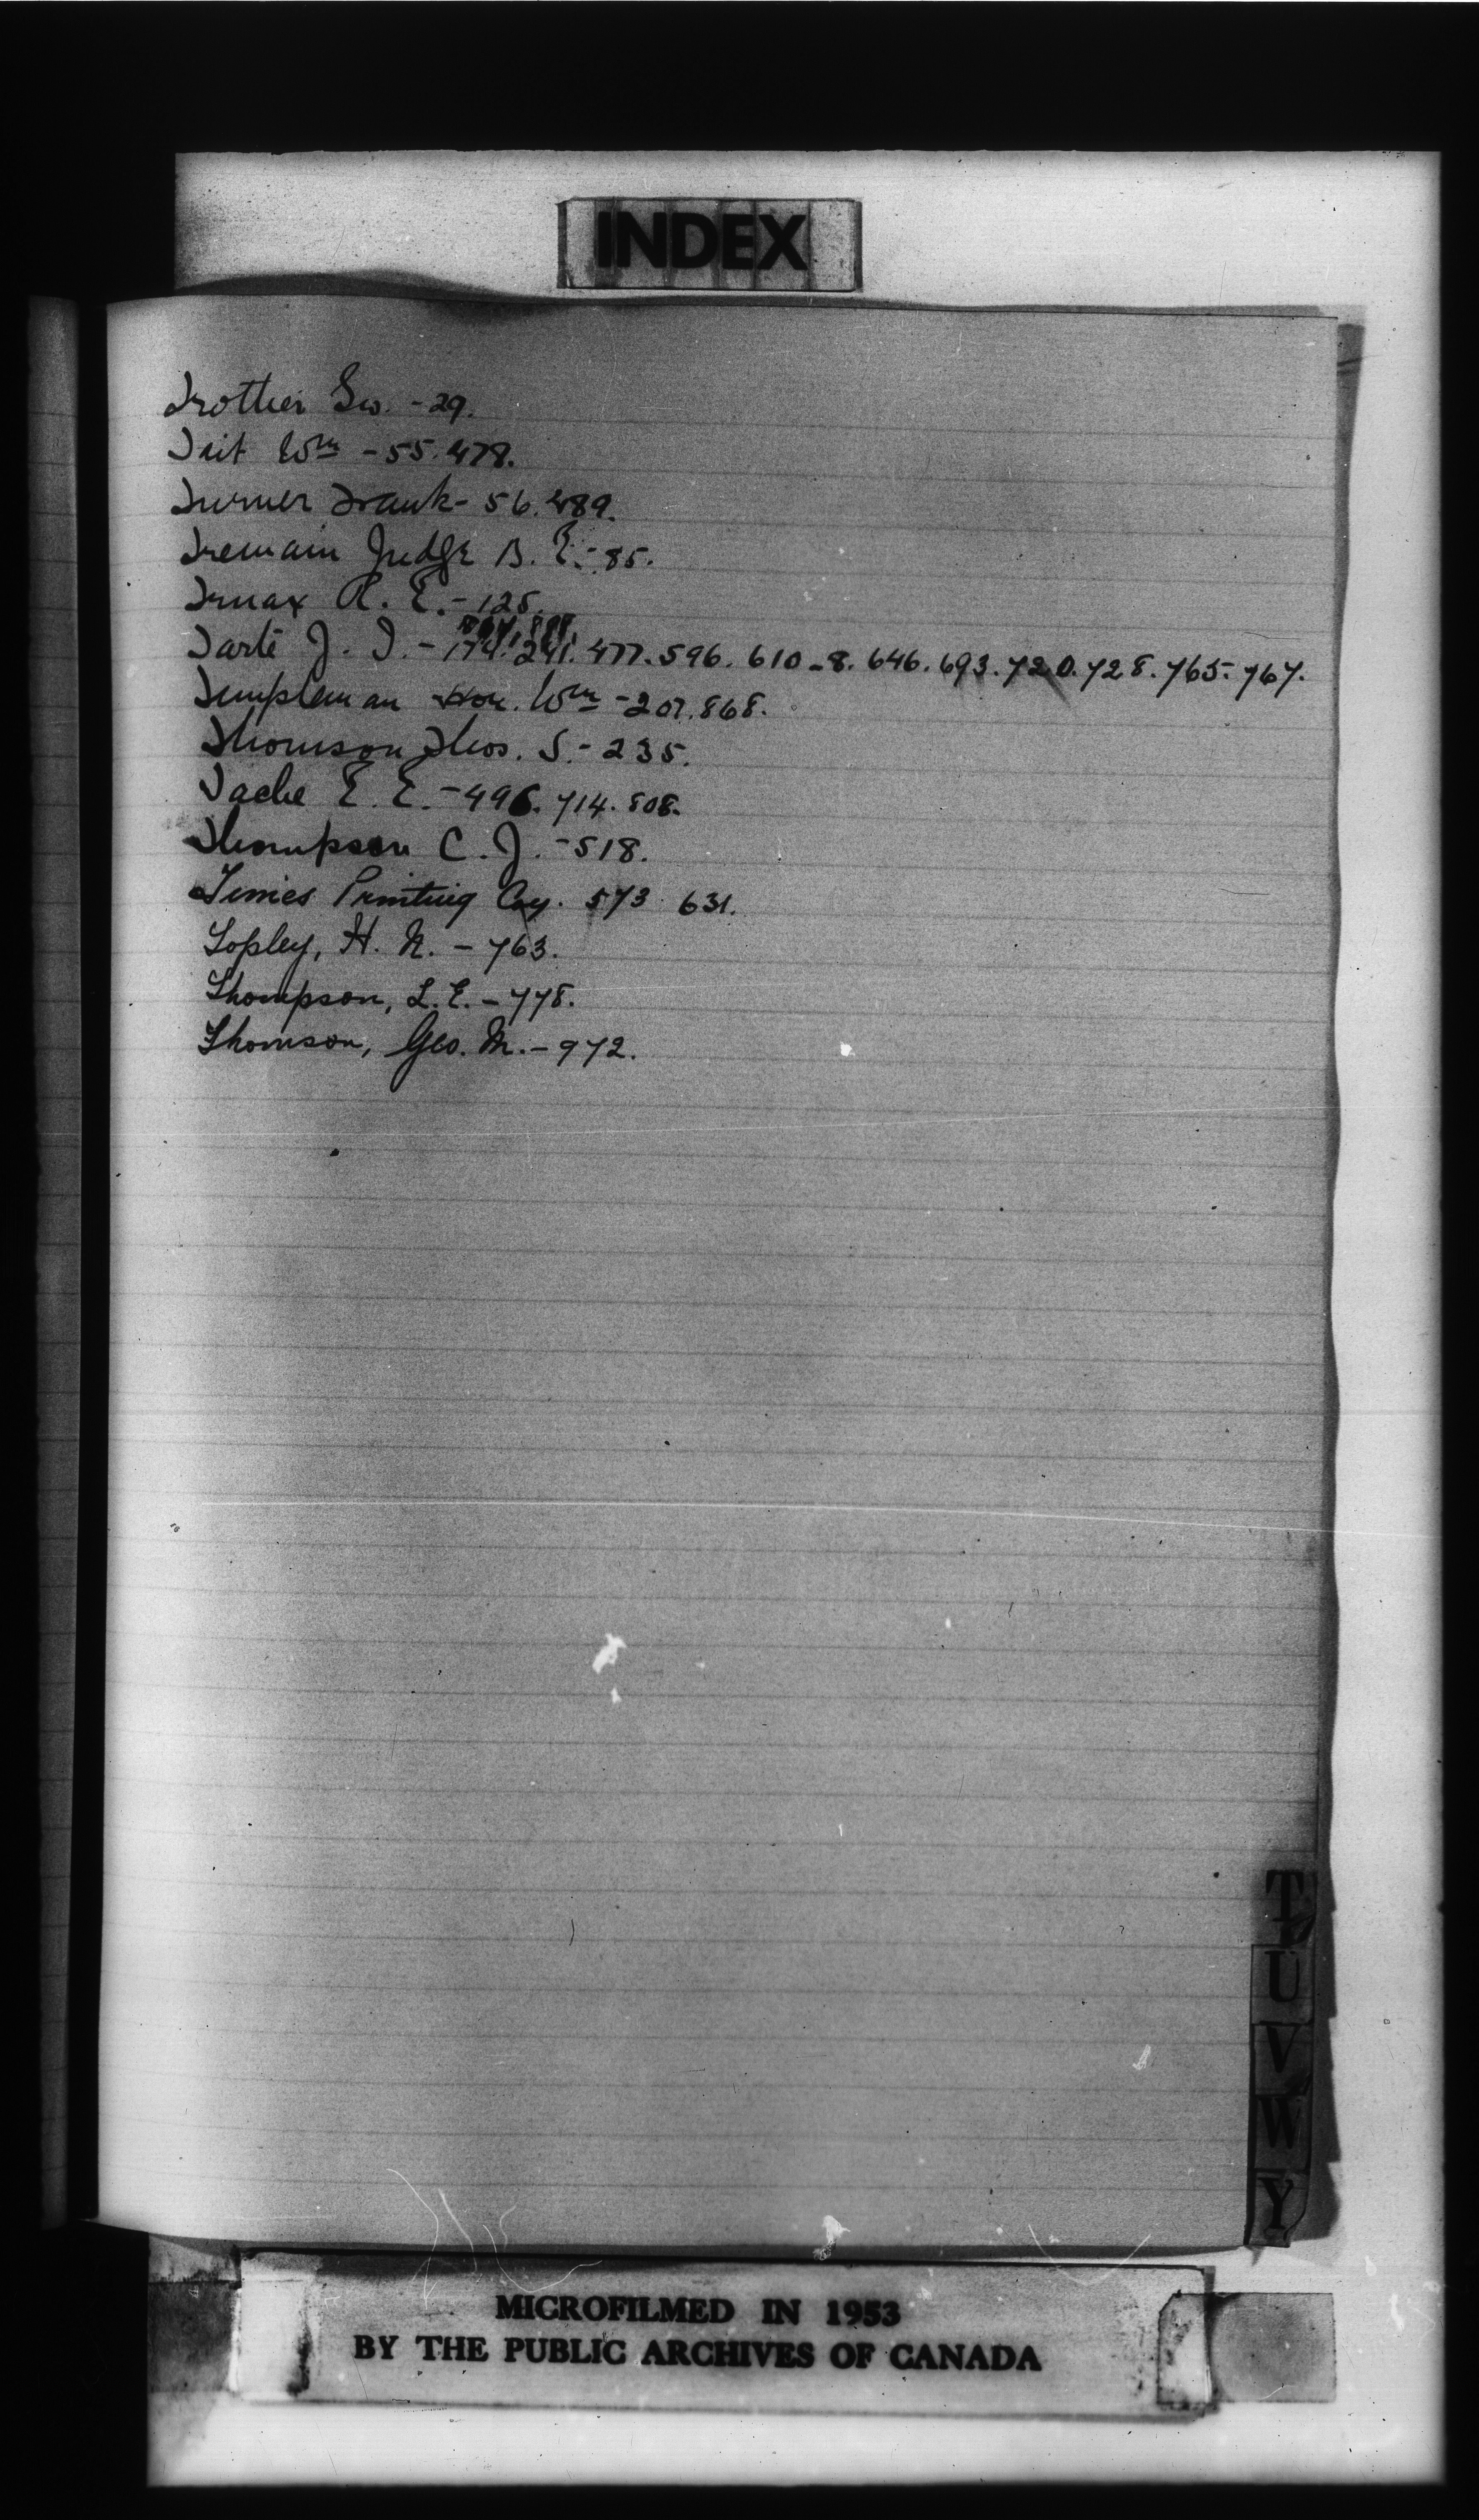 INDEX
Trotter Geo. - 29.
Tait Wm - 55. 478.
Turner Frank - 56. 489.
Tremain Judge B. E. - 85.
Truax R. E. - 125.
Tarte J. I. - 174. 241. 477. 596. 610-8. 646. 693. 720. 728. 765. 767.
Templeman Hon. Wm - 207. 868.
Thomson Thos. S. - 235.
Tache E. E. - 496. 714. 808.
Thompson C. J. - 518.
Times Printing Coy. 573 631.
Topley, H. N. - 763.
Thompson, L. E. - 778.
Thomson, Geo. M. - 972.
T
U
V
W
Y
MICROFILMED IN 1953
BY THE PUBLIC ARCHIVES OF CANADA